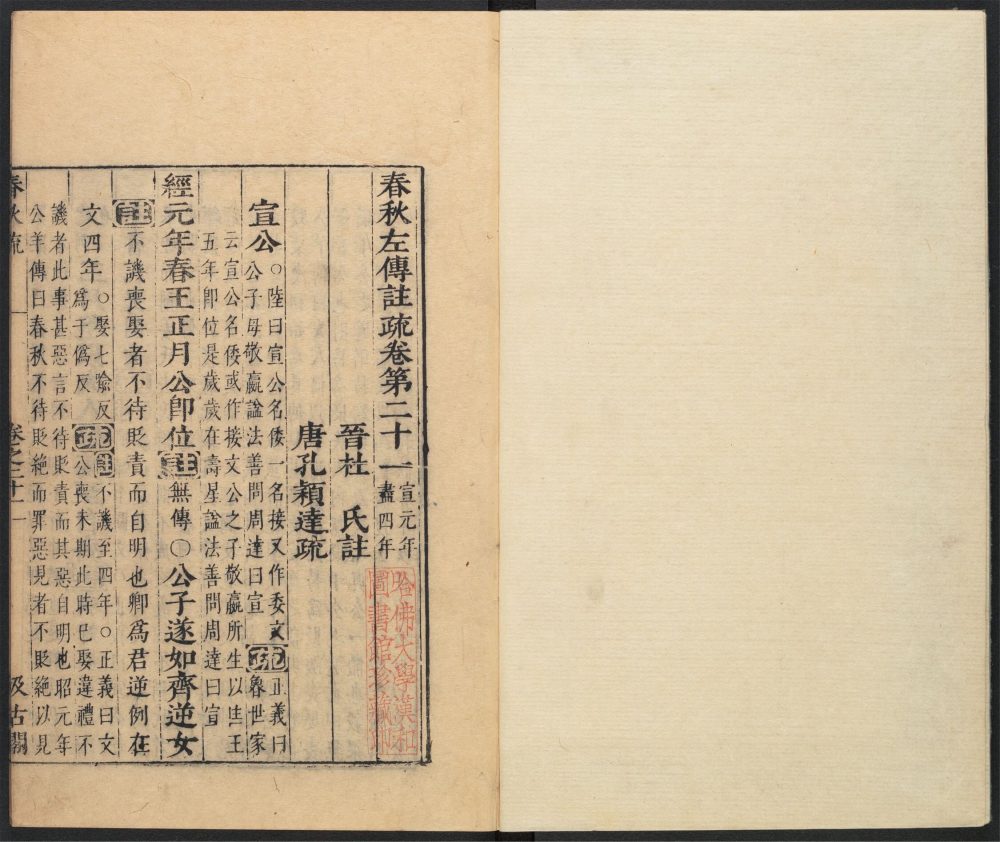 春秋左傳註疏卷第二十一
宣元年
盡四年
哈佛大學漢和
圖書館珍藏印
晉杜 氏註
唐孔穎達疏
宣公
○陸曰宣公名倭一名接又作委文
公子母敬嬴諡法善問周達曰宣
疏
正義曰
魯世家
云宣公名倭或作接文公之子敬嬴所生以匡王
五年即位是歲歲在壽星諡法善問周達曰宣
經元年春王正月公即位註無傳○公子遂如齊逆女
註不譏喪娶者不待貶責而自明也卿爲君逆例在
文四年
○娶七喻反
爲于僞反
疏
註不譏至四年○正義曰文
公喪未期此時已娶違禮不
譏者此事甚惡言不待貶責而其惡自明也昭元年
公羊傳曰春秋不待貶絶而罪惡見者不貶絶以見
春秋疏
卷之二十一
一
汲古閣